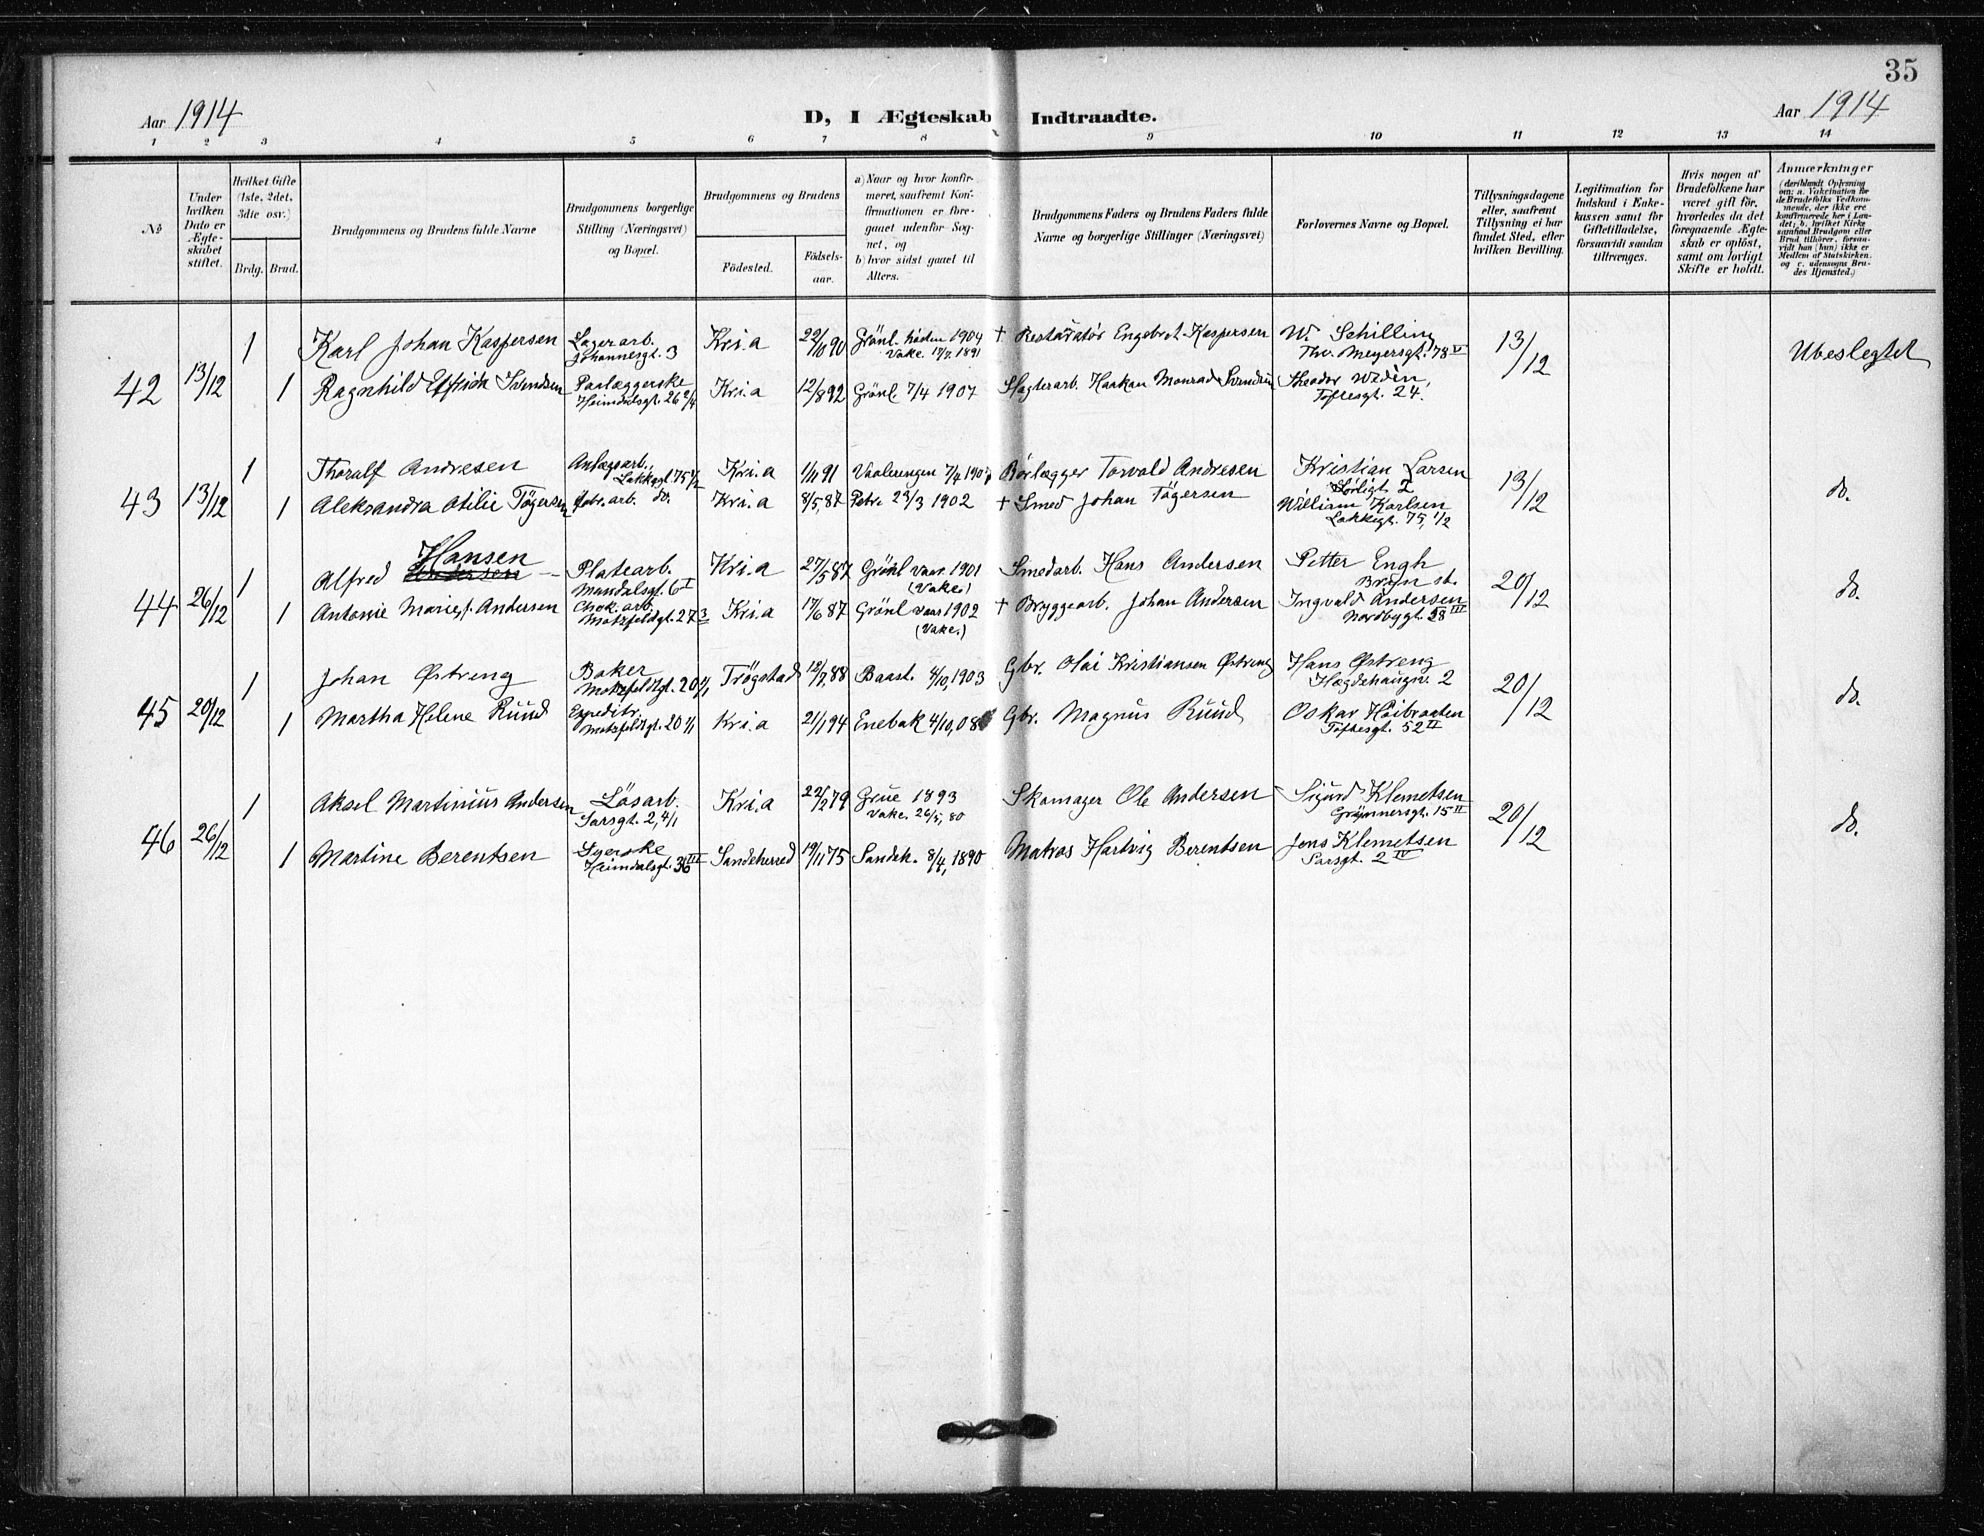 35
Aar 1914
D, I Ægteskab Indtraadte.
Aar 1914
1 2 3 4 5 6 7 8 9 10 11 12 13 14
No
Under hvilken Dato er Ægteskabet stiftet.
Hvilket Gifte (1ste, 2det, 3die osv.)
Brdg. Brud.
Brudgommens og Brudens fulde Navne
Brudgommens borgerlige Stilling (Næringsvei) og Bopæl.
Brudgommens og Brudens
Fødested.
Fødselsaar.
a) Naar og hvor konfirmeret, saafremt Konfirmationen er foregaaet udenfor Sognet, og
b) hvor sidst gaaet til Alters.
Brudgommens Faders og Brudens Faders fulde Navne og borgerlige Stillinger (Næringsvei)
Forlovernes Navne og Bopæl.
Tillysningsdagene eller, saafremt Tillysning ei har fundet Sted, efter hvilken Bevilling.
Legitimation for Indskud i Enkekassen samt for Giftetilladelse, forsaavidt saadan tiltrænges.
Hvis nogen af Brudefolkene har været gift før, hvorledes da det foregaaende Ægteskab er opløst, samt om lovligt Skifte er holdt.
Anmærkninger
(deriblandt Oplysning om: a. Vakcination for de Brudefolks Vedkommende, der ikke ere konfirmerede her i Landet; b. hvilket Kirkesamfund Brudgom eller Brud tilhører, forsaavidt han (hun) ikke er Medlem af Statskirken. og c. udensogns Brudes Hjemsted.)
42 13/12 1 Karl Johan Kaspersen Lagerarb. Johannesgt. 3 Kri.a 22/10 90 Grönl. høsten 1904 Vakc. 17/7. 1891 + Restauratør Engebret Kaspersen W. Schilling Thv. Meyersgt. 78 V 13/12 Ubeslegtet
1 Ragnhild Svendsen Paalæggerske Heimdalsgt. 26 Kri.a 12/8 92 Grönl. 7/4 1907 Slagterarb. Haakon Monrad Svendsen Theodor Wedin, Toftesgt. 24.
43 13/12 1 Thoralf Andresen Anlægsarb., Lakkegt. 75 1/2 Kri.a 1/11 91 Vaalerengen 7/4 190 Rørlægger Torvald Andresen Kristian Larsen Sörligt. 2 13/12 do.
1 Aleksandra Otilie Tögersen Fabr. arb. do. Kri.a 8/5, 87 Petr. 23/3 1902 + Smed Johan Tögersen William Karlsen Lakkegt. 75, 1/2
44 26/12 1 Alfred Hansen Andersen Platearb. Mandalsgt. 6 I Kri.a 27/5 87 Grönl vaar 1901 (Vakc.) Smedarb. Hans Andersen Petter Engh Bryn st. 20/12 do.
1 Antonie Marie, f. Andersen Chok. arb. Motzfeldtgt. 27 3 Kri.a 17/6 87 Grönl vaar 1902 (Vakc.) + Bryggearb. Johan Andersen Ingvald Andersen Nordbygt. 28 III
45 20/12 1 Johan Østreng Baker Motzfeldtgt. 20 1/1 Trögstad 12/7, 88 Baast. 4/10, 1903 Gbr. Olai Kristiansen Østreng Hans Østreng Hægdehaugv. 2 20/12 do.
1 Martha Helene Ruud Expeditr. Motzfeldtgt. 20 1/1 Kri.a 21/1 94 Enebak 4/10, 08 Gbr. Magnus Ruud Oskar Höibraaten Toftesgt. 52 II
46 26/12 1 Aksel Martinius Andersen Lösarb. Sarsgt. 2, 4/1 Kri.a 22/2 79 Grue 1893 Vakc. 26/5, 80 Skomager Ole Andersen Sigurd Klemetsen Grünnersgt. 15 II 20/12 do.
1 Martine Berentsen Syerske Heimdalsgt. 36 III Sandeherred 19/11 75 Sandeh. 8/4, 1890 Matros Hartvig Berentsen Jens Klemetsen Sarsgt. 2 IV